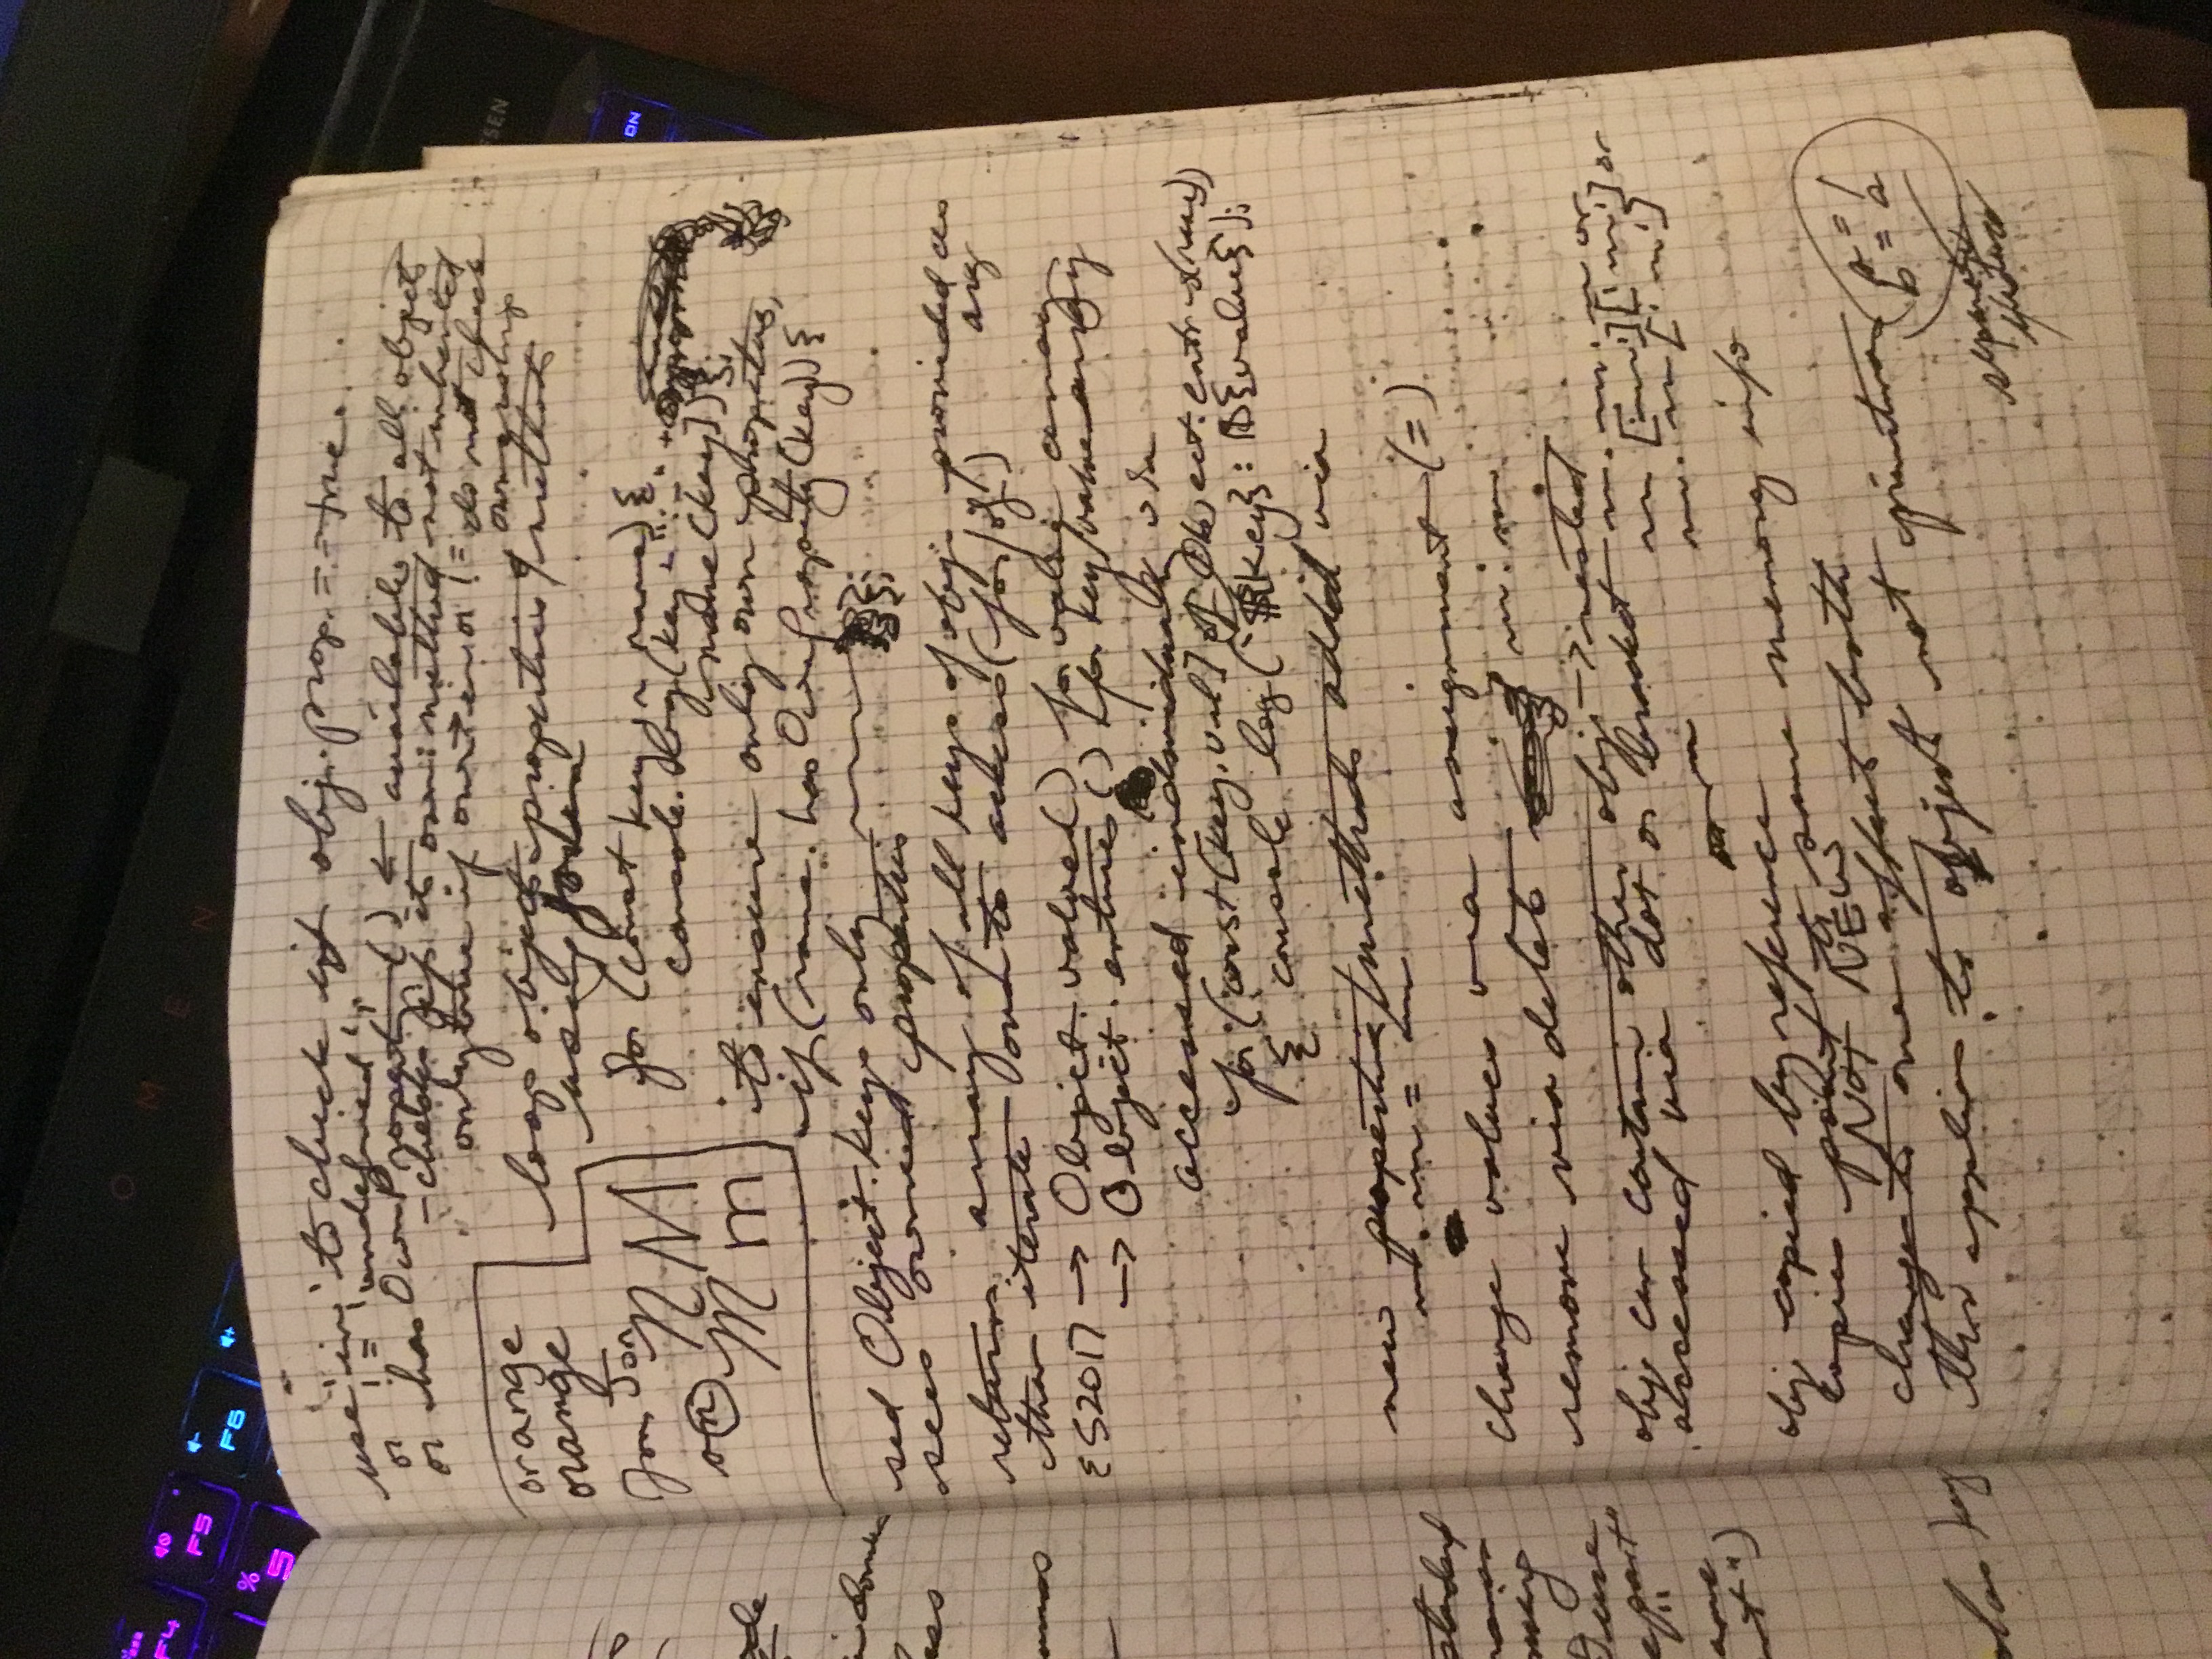 OMEN
F4
F5
F6
%
5
SSEN
ON
use 'in' to check if obj.prop. == true.
or != 'undefined',
or hasOwnProperty() ← available to all object
- checks if its own method not inherited
only true if own → in or != do not check
ownership
orange
orange
Jon Jon
on
n M
M m
loop object properties/methods
using for in
for (const key in name) {
console.log(key + ": " +
name[key])};
to ensure only own properties,
if (name.hasOwnProperty(key)) {
}};
Object.keys only
sees owned properties
returns array of all keys of obj. provided as
arg
then iterate over to access (for/of)
ES2017 → Object.values() for value array
→ Object.entries() for key/value array
accessed individually via
for (const [key, val] of Object.entries(name))
{ console log(`${key} : ${value});
new properties/methods added via
change values via assignment (=)
remove via delete
obj can contain other obj → nested
accessed via dot or bracket
or
or
obj copied by reference
copies point to same memory info
NOT NEW
changes to one affect both
this applies to object not primitives
a = 1
b = a
separate
standard
use
part"
")
key